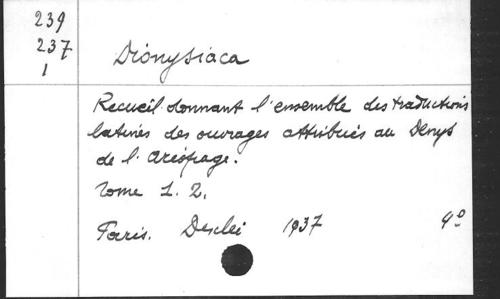 239
237
1
Dionysiaca
Recueil donnant l'ensemble des traductions
latines des ouvrages attribués au Denys
de l'Aréopage.
Tome 1. 2.
Paris. Desclei 1937 4°